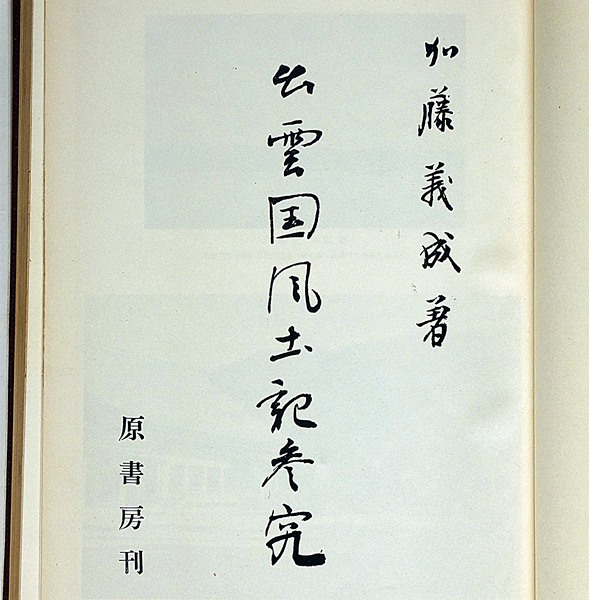 加藤義成著
出雲国風土記参究
原書房刊